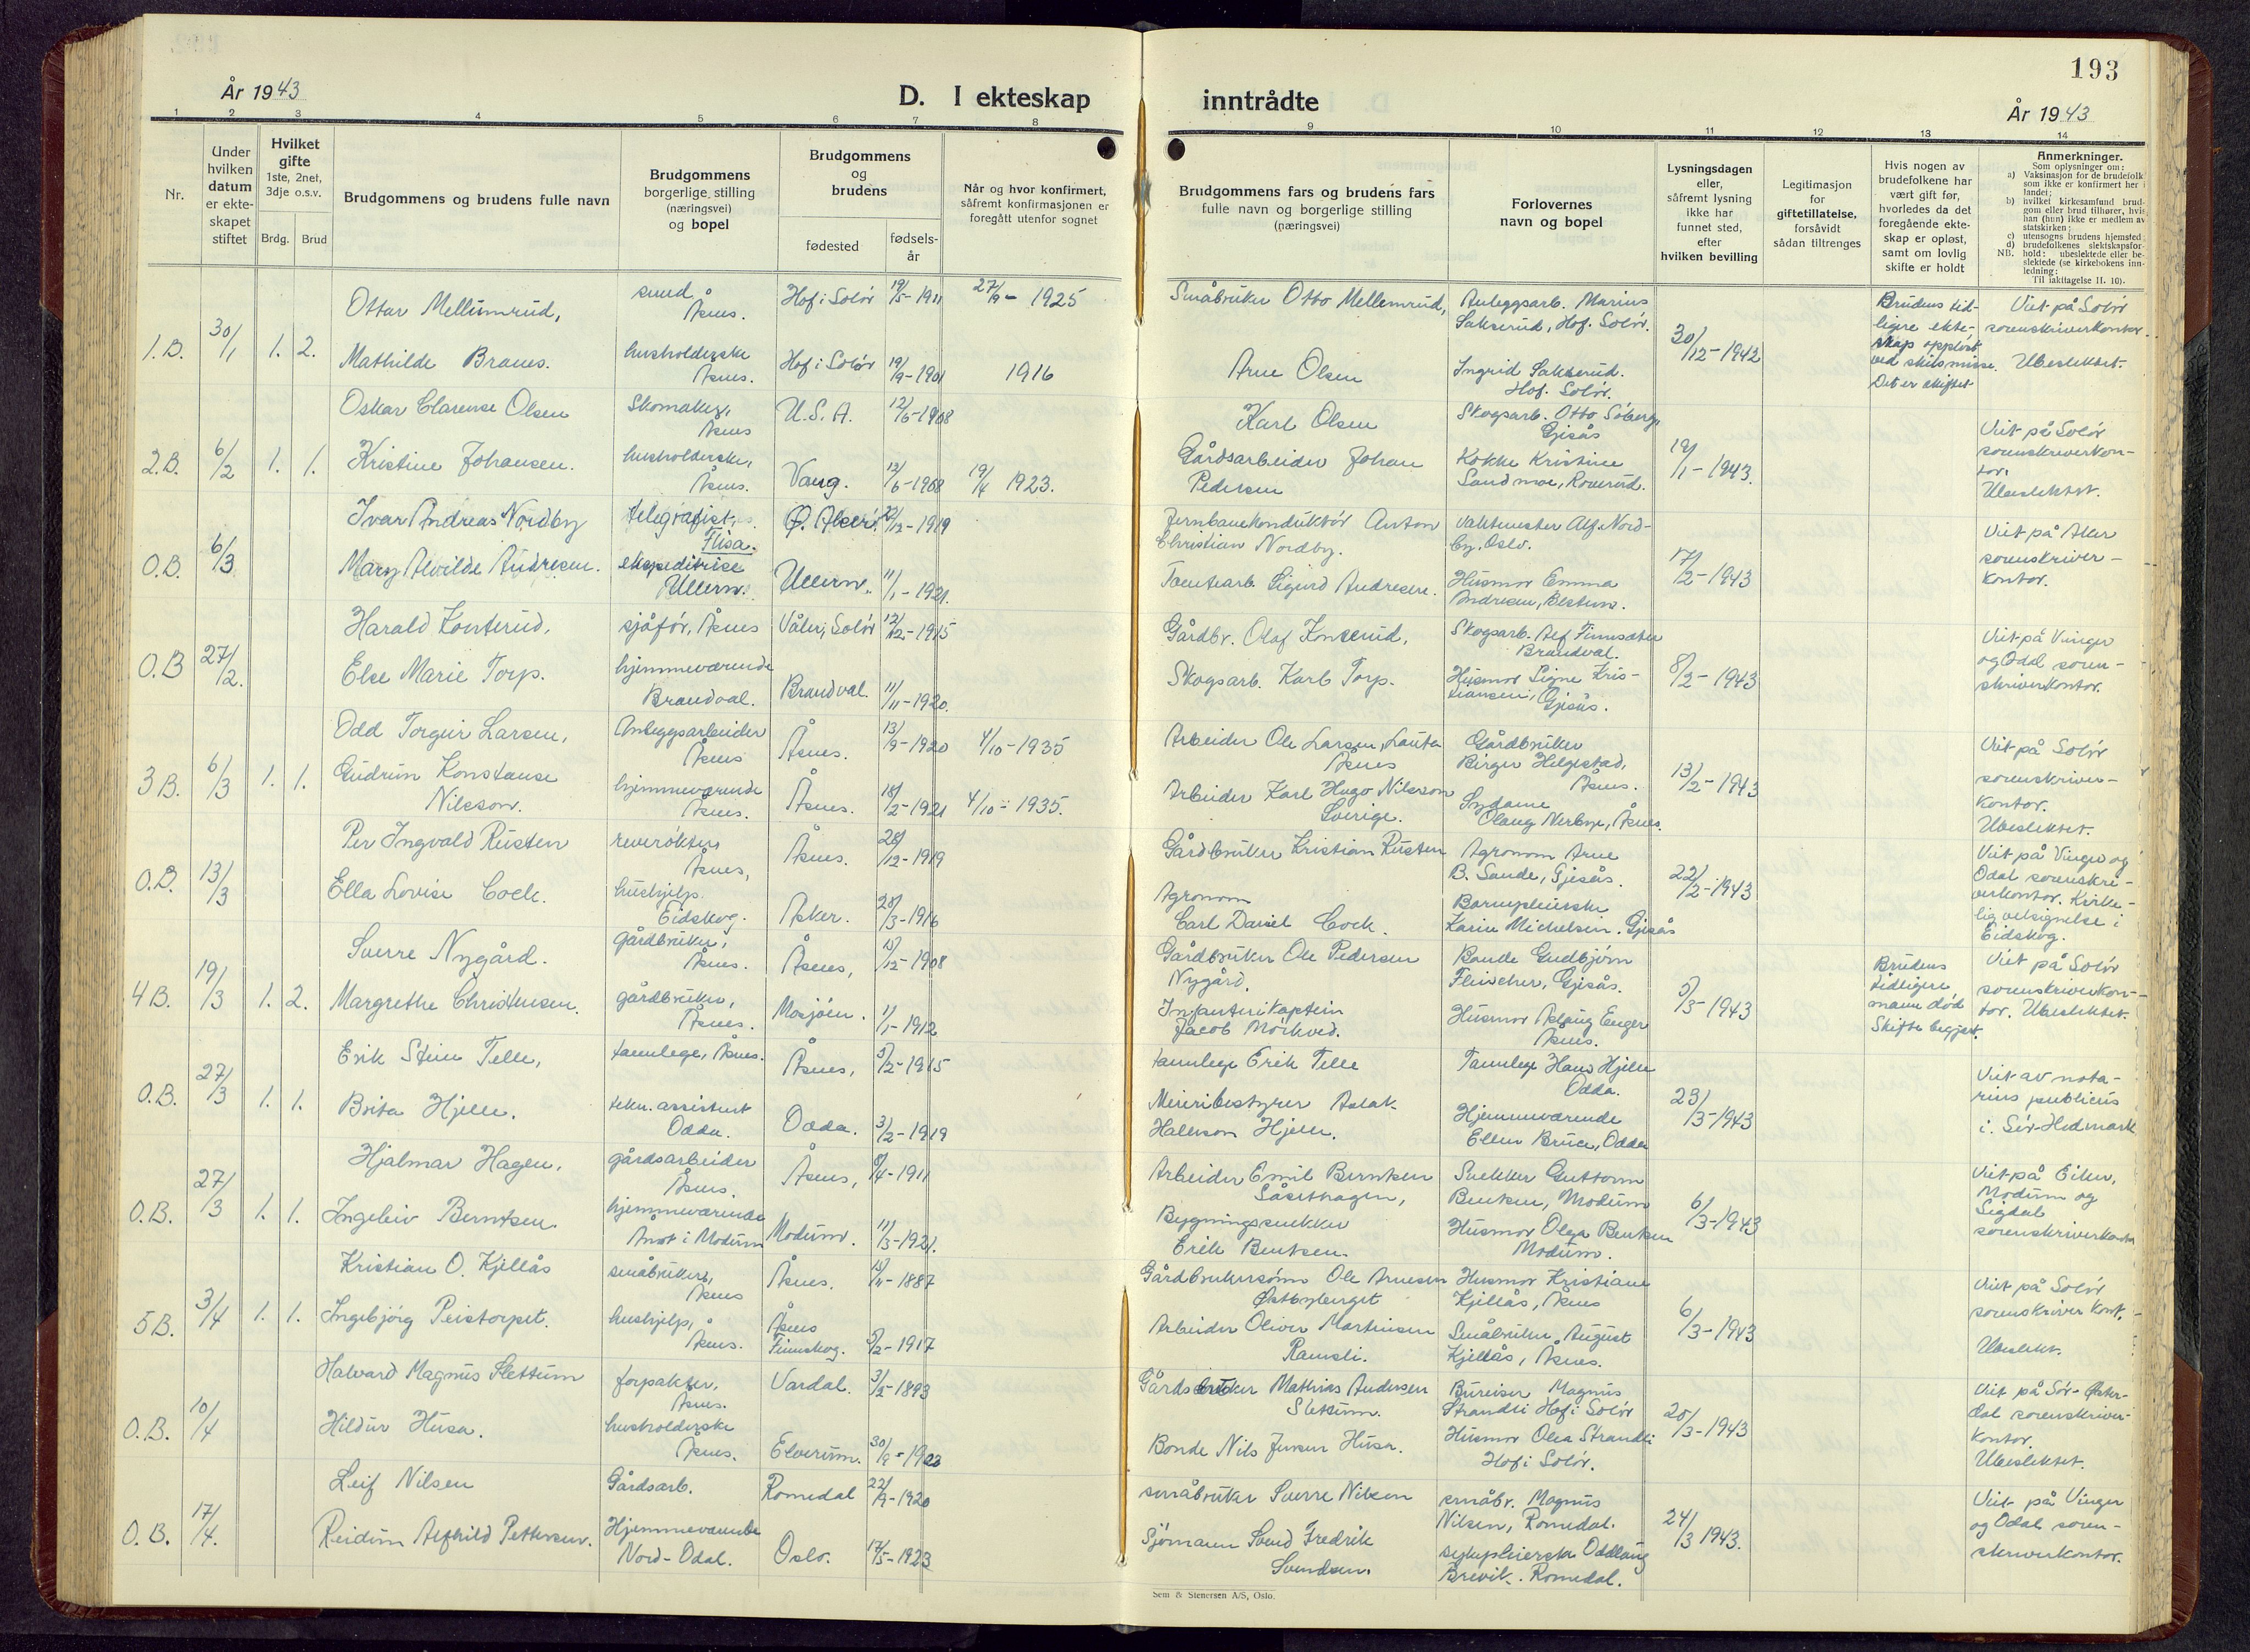 193
År 1943
D. I ekteskap inntrådte
År 1943
1 2 3 4 5 6 7 8 9 10 11 12 13 14
Nr.
Under hvilken datum er ekteskapet stiftet
Hvilket gifte 1ste, 2net, 3dje o.s.v.
Brdg. Brud
Brudgommens og brudens fulle navn
Brudgommens borgerlige stilling (næringsvei) og bopel
Brudgommens og brudens
fødested
fødselsår
Når og hvor konfirmert, såfremt konfirmasjonen er foregått utenfor sognet
Brudgommens fars og brudens fars fulle navn og borgerlige stilling (næringsvei)
Forlovernes navn og bopel
Lysningsdagen eller, såfremt lysning ikke har funnet sted, efter hvilken bevilling
Legitimasjon for giftetillatelse, forsåvidt sådan tiltrenges
Hvis nogen av brudefolkene har vært gift før, hvorledes da det foregående ekteskap er opløst, samt om lovlig skifte er holdt
Anmerkninger.
Som oplysninger om:
a) Vaksinasjon for de brudefolk som ikke er konfirmert her i landet;
b) hvilket kirkesamfund brudgom eller brud tilhører, hvis han (hun) ikke er medlem av statskirken;
c) utensogns brudens hjemsted;
d) brudefolkenes slektskapsforhold: ubeslektede eller beslektede (se kirkebokens innledning;
NB. Til iakttagelse II. 10).
1.B. 30/1 1. 2.
Ottar Mellumrud, Åsnes. Hof i Solør 19/5-1911 27/9-1925
Mathilde Branes. husholderske Åsnes. Hof i Solør 19/9-1901 1916
Småbruker Otto Mellemrud, Anleggsarb. Marius Sakserud, Hof. Solør.
Arne Olsen Ingrid Sakserud. Hof. Solør.
30/12-1942
Brudens tidligere ekteskap oppløst ved skilsmisse. Det er skiftet
Viet på Solør sorenskriverkontor. Ubeslektet.
2.B. 6/2 1. 1.
Oskar Clarense Olsen Skomaker, Åsnes U.S.A. 12/6-1908
Kristine Johansen. husholderske, Åsnes. Vang. 12/6-1908 19/4 1923.
Karl Olsen Skogsarb. Otto Søberg, Gjesås
Gårdsarbeider Johan Pedersen Kokke Kristine Sandmoe, Roverud.
19/1-1943.
Viet på Solør sorenskriverkontor. Ubeslektet.
O.B. 6/3
Ivar Andreas Nordby telegrafist, Flisa. Ø. Aker. /12-1919
Mary Alvilde Andresen. ekspeditrise Ullern. Ullern. 11/1-1921.
Jernbanekonduktør Anton Christian Nordby. Vaktmester Alf Nordby, Oslo.
Tomtearb. Sigurd Andresen. Husmor Emma Andresen, Bestum.
17/2-1943
Viet på Aker sorenskriverkontor.
O.B 27/2.
Harald Konterud, sjåfør, Åsnes Våler, Solør 12/12-1915
Else Marie Torp. hjemmeværende Brandval. Brandval. 11/11-1920.
Gårdbr. Olaf Konterud, Skogsarb. Alf Finnsæter Brandval.
Skogsarb. Karl Torp. Husmor Signe Kristiansen, Gjesås.
8/2-1943
Viet på Vinger og Odal sorenskriverkontor.
3B. 6/3 1. 1.
Odd Torgeir Larsen, Anleggsarbeider Åsnes Åsnes. 13/9-1920 4/10-1935
Gudrun Konstanse Nilsson. hjemmeværende Åsnes. Åsnes. 18/2-1921 4/10-1935.
Arbeider Ole Larsen, Lauta Åsnes Gårdbruker Birger Helgestad, Åsnes.
Arbeider Karl Hugo Nilsson Sverige. Sydame Olaug Nerbye, Åsnes.
13/2-1943
Viet på Solør sorenskriverkontor. Ubeslektet.
O.B. 13/3
Per Ingvald Rusten reverøkter, Åsnes, Åsnes. 28/12-1919
Ella Lovise Cock. hushjelp. Eidskog. Asker. 28/3-1916
Gårdbruker Kristian Rusten Agronom Arne B. Sande, Gjesås.
Agronom Carl Daniel Cock. Barnepleierske Karin Michelsen. Gjesås
22/2-1943
Viet på Vinger og Odal sorenskriverkontor. Kirkelig velsignelse i Eidskog.
4B. 19/3 1. 2.
Sverre Nygård. gårdbruker, Åsnes. Åsnes, /12-1908
Margrethe Christensen. gårdbruker, Åsnes. Mosjøen. 1/1-1912
Gårdbruker Ole Pedersen Nygård. Bonde Gudbjørn Fleischer, Gjesås.
Infanterikaptein Jacob Mørkved. Husmor Aslaug Enger Åsnes.
5/3-1943
Brudens tidligere mann død Skifte begjært.
Viet på Solør sorenskriverkontor. Ubeslektet.
O.B. 27/3 1. 1.
Erik Stein Telle, tannlege, Åsnes. Åsnes, 5/2-1915
Brita Hjelle. tekn. assistent Odda. Odda. 3/2-1919
tannlege Erik Telle Tannlege Hans Hjelle Odda.
Meieribestyrer Aslak Halvson Hjelle. Hjemmeværende Ellen Bruer, Odda
23/3-1943
Viet av notarius publicus i. Sør-Hedmark
O.B. 27/3 1. 1.
Hjalmar Hagen, gårdsarbeider Åsnes. Åsnes, 8/4-1911
Ingeleiv Berntsen. hjemmeværende Åmot i Modum Modum. 11/3-1921.
Arbeider Emil Berntsen Såsethagen, Snekker Guttorm Bentsen, Modum
Bygningssnekker Erik Bentsen. Husmor Olga Bentsen Modum.
6/3-1943
Viet på Eiker, Modum og Sigdal sorenskriverkontor
5B. 3/4 1. 1.
Kristian O. Kjellås småbruker, Åsnes Åsnes. /11-1887
Ingebjørg Peistorpet. hushjelp, Åsnes. Åsnes Finnskog. /2-1917
Gårdbrukersønn Ole Arnesen Østbyberget Husmor Kristiane Kjellås, Åsnes
Arbeider Oliver Martinsen Ramsli. Småbruker August Kjellås, Åsnes.
6/3-1943
Viet på Solør sorenskriver kont. Ubeslekt.
O.B. 10/4
Halvard Magnus Slettum forpakter, Åsnes. Vardal. 3/2-1893
Hildur Husa. husholderske Åsnes. Elverum. 30/9-1902
Gårdsbruker Mathias Andersen Sletum. Bureiser Magnus Strandli Hof i Solør
Bonde Nils Jensen Husa. Husmor Olea Strandli Hof i Solør.
25/3-1943
Viet på Sør-Østerdal sorenskriverkontor. Ubeslektet.
O.B. 17/4.
Leif Nilsen Gårdsarb. Romedal 22/9-1920
Reidun Alfhild Pettersen. Hjemmeværende Nord-Odal. Oslo. 17/5-1923
småbruker Sverre Nilsen småbr. Magnus Nilsen, Romedal.
Sjømann Svend Fredrik Svendsen. sykepleierske Oddlaug Brevik. Romedal.
24/3 1943.
Viet på Vinger og Odal sorenskriverkontor.
Sem & Stenersen A/S, Oslo.